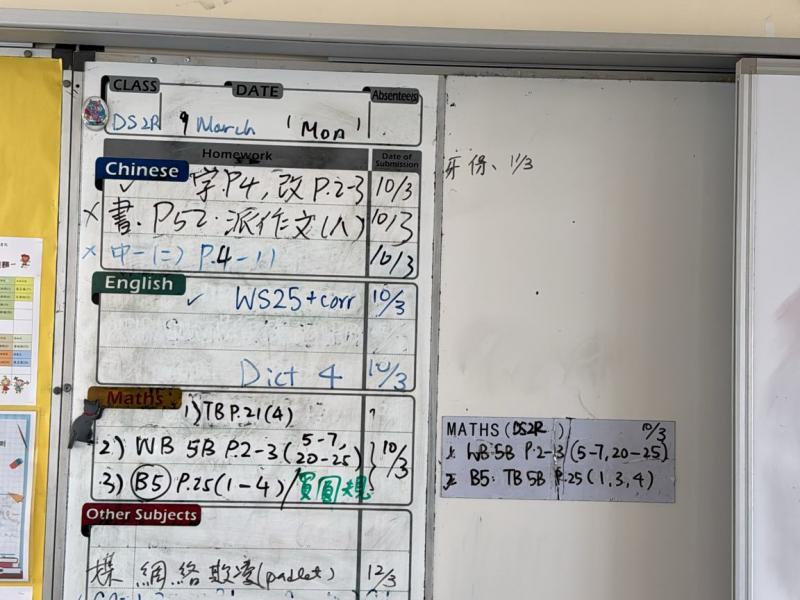 CLASS DATE Absentee(s)
DS2R 9 March (Mon)
Homework Date of Submission
Chinese
✓ 学.P4, 改 P.2-3 10/3
× 書. P52. 派作文(八) 10/3
× 中一(二) P.4-11 10/3
English
✓ WS25+corr 10/3
Dict 4 10/3
Maths
1) TB P.21(4)
2) WB 5B P.2-3 (5-7, 20-25) } 10/3
3) B5 P.25(1-4)/買圓規
Other Subjects
網絡欺凌(padlet) 12/3
牙保、11/3
MATHS (DS2R) 10/3
1. WB 5B P.2-3 (5-7, 20-25)
2. B5: TB 5B P.25 (1,3,4)